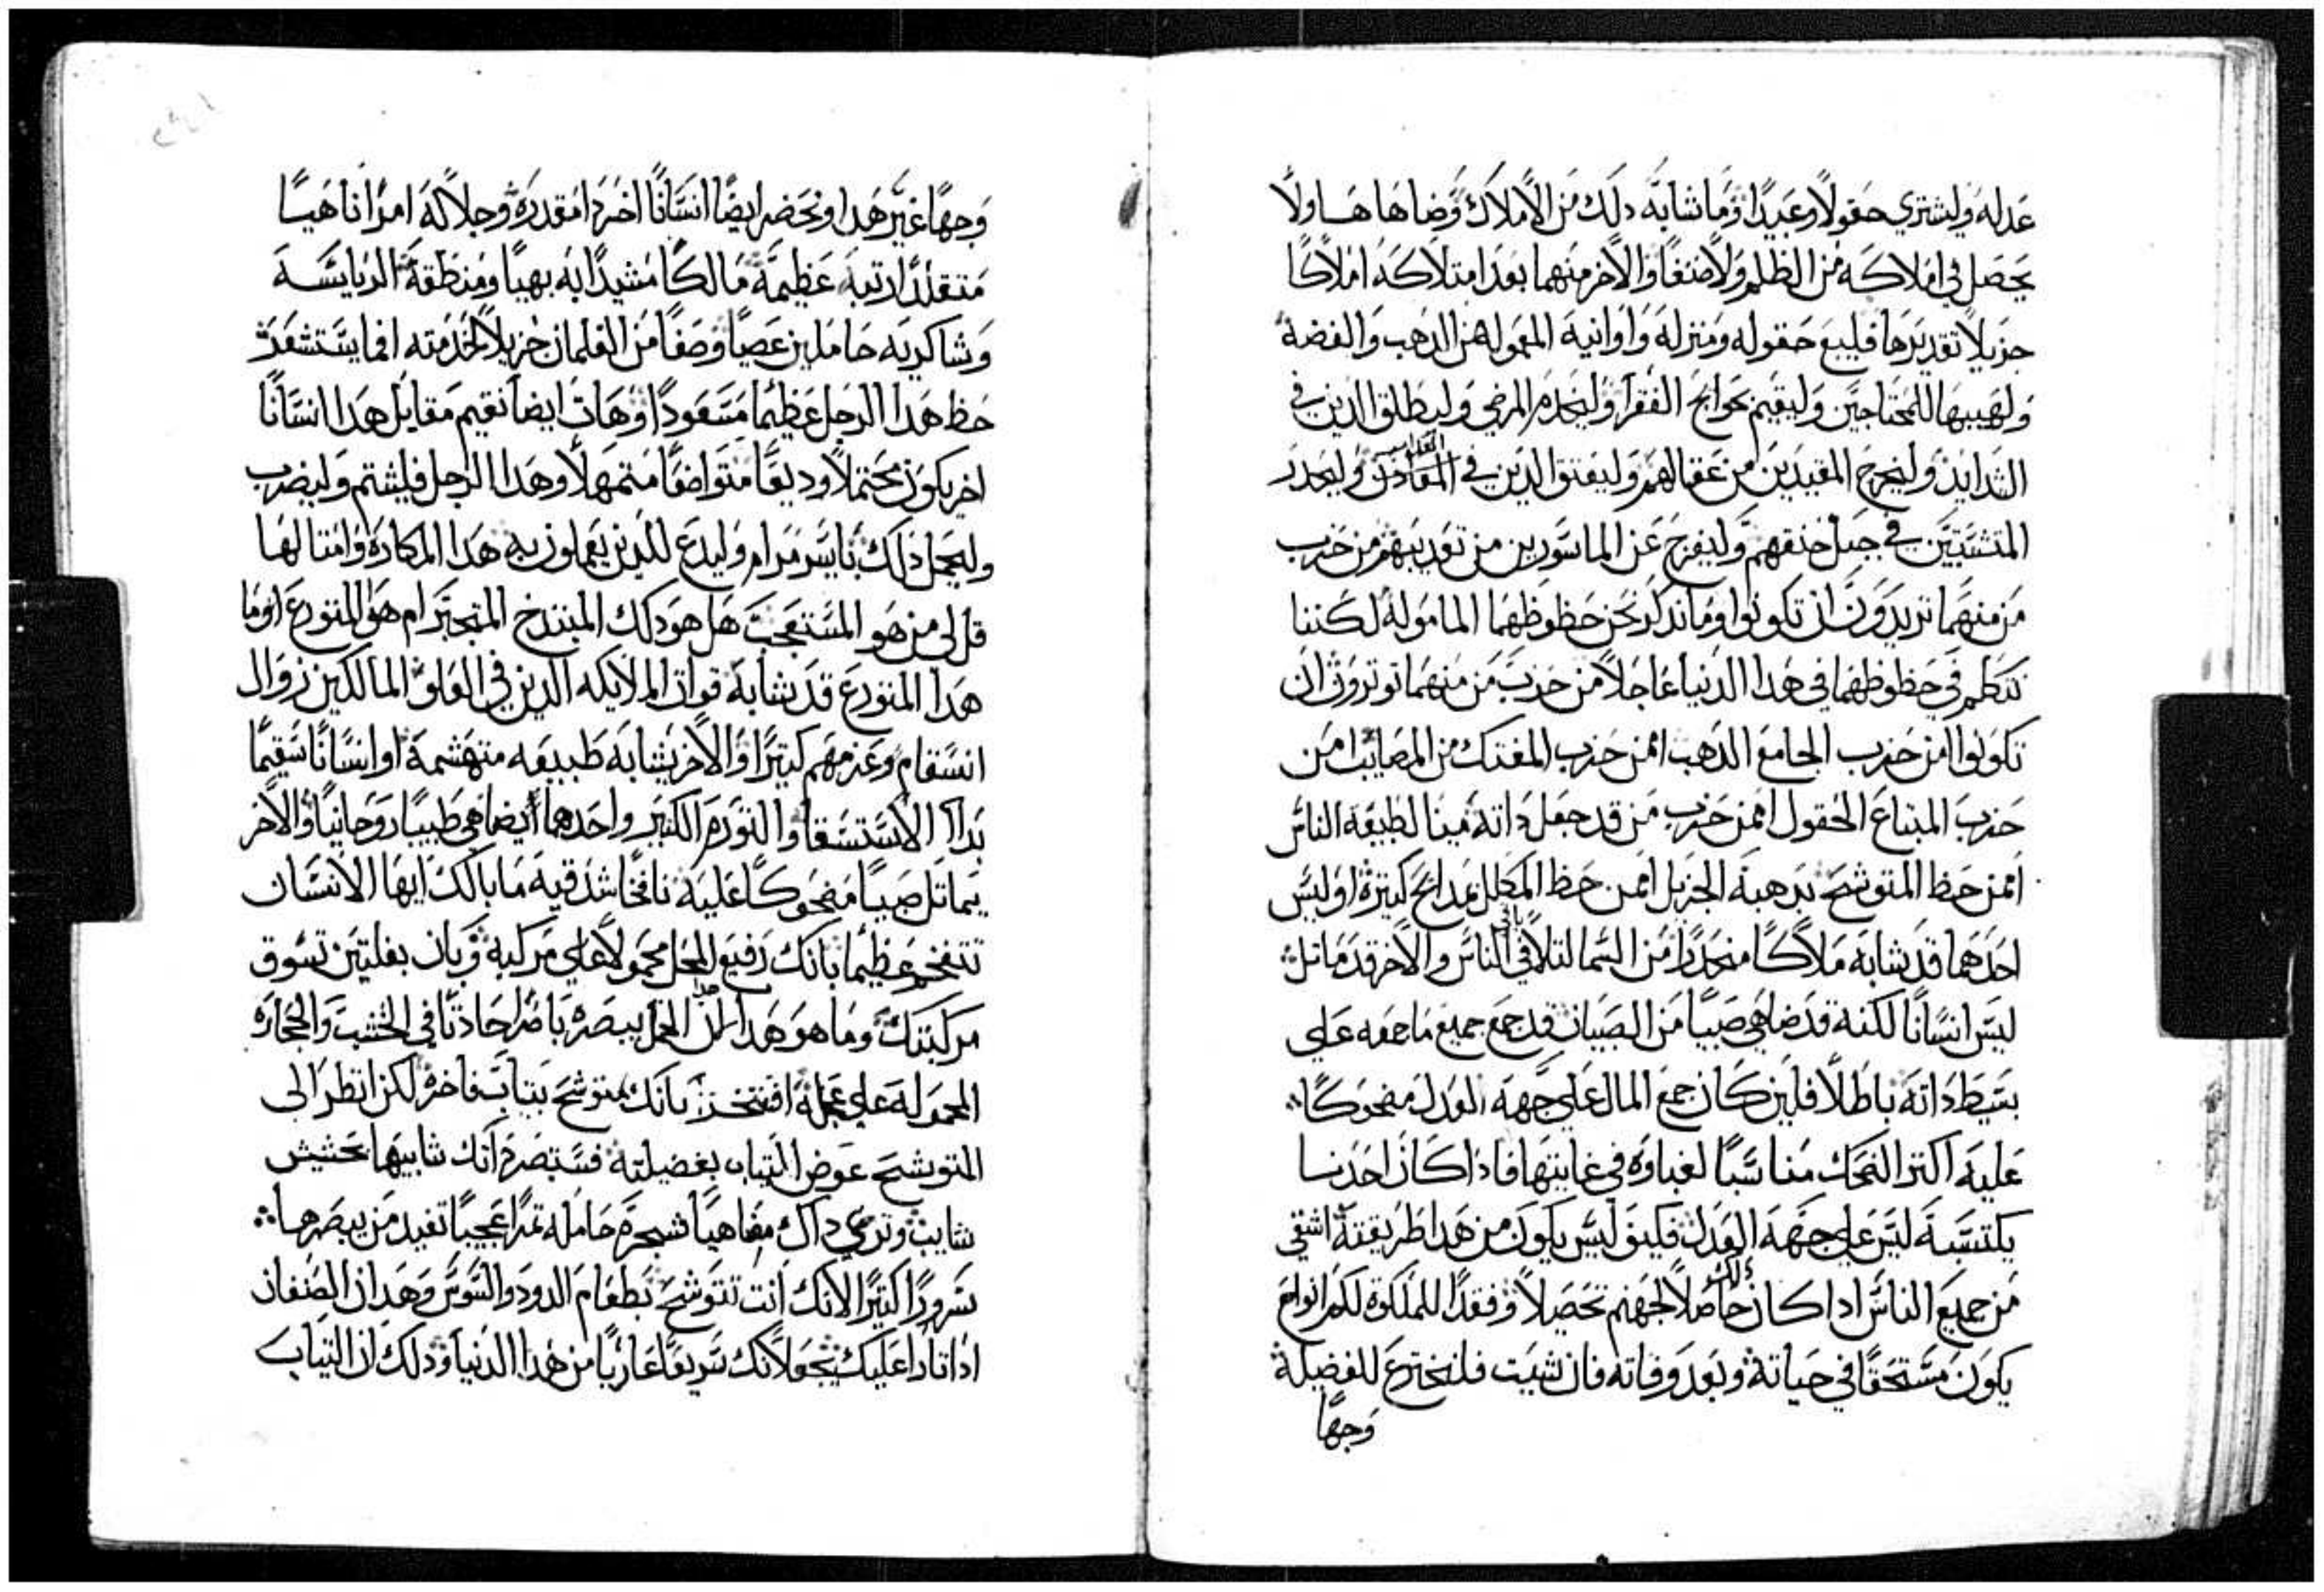 عدله وليشتري حقولاً وعبيداً وما شابه دلك من الاملاك وضاها هاولا
يحصل في املاكه من الظلم ولا صنفاً والاخر منهما بعد امتلاكه املاكاً
جزيلاً تقديرها فليبع حقوله ومنزله واوانيه المعموله من الدهب والفضة
ولهيبها للمحتاجين وليقيم بحوايج الفقرا وليخدم المرضي وليطلق الدين في
الشدايد وليخرج المقيدين من عقالهم وليعتق الدين في المعادن وليحدر
المتشبتين في حبل خنقهم وليفرج عن الماسورين من تعديبهم من حزب
من منهما تريدون ان تكونوا وما ندكر نحن حظوظهما الماموله لكننا
نتكلم في حظوظهما في هدا الدنيا عاجلاً من حزب من منهما توترون ان
تكونوا امن حزب الجامع الدهب امن حزب المفتك من المصايب امن
حزب المبتاع الحقول امن حزب من قد جعل داته مينا لطبيعة الناس
امن حظ المتوشح بدهبه الجزيل امن حظ المكلل بمدايح كتيرة اوليس
احدهما قد شابه ملاكاً منحدراً من السما لتلافي باقي الناس والاخر قد ماتل
ليس انساناً لكنه قد ضاهي صبياً من الصبيان قد جمع جميع ما جمعه علي
بسيط داته باطلاً فلين كان جمع المال علي جهة العدل مضحوكاً
عليه اكتر الضحك مناسباً لغباوه في غايتها فادا كان احدنا
يكتسبه ليس علي جهة العدل فكيف ليس يكون من هدا طريقته اشقي
من جميع الناس ادا كان دلك حاصلاً لجهنم تحصيلاً وفقداً للملكوة لكم انواح
يكون مستحقاً في حياته وبعد وفاته فان شيت فلنخترع للفضيلة
وجهاً
وجهاً غير هدا ونحضر ايضاً انساناً اخر دا مقدرة وجلالة امراً ناهياً
متقلداً رتبة عظيمة مالكاً مشيداً ابه بهياً ومنطقة الريايسة
وشاكريه حاملين عصياً وصفاً من الغلمان جزيلاً لخدمته افما يستشعر
حظ هدا الرجل عظيماً مسعوداً وهات ايضاً نقيم مقابل هدا انساناً
اخر يكون محتملاً وديعاً متواضعاً متمهلاً وهدا الرجل فليشتم وليضرب
وليحمل دلك بايسر مرام وليدع للدين يعملون به هدا المكاره وامتالها
قل لي من هو المستعجب هل هو دلك المبتدخ المتجبر ام هو المتورع اوما
هدا المتورع قد يشابه قوات الملايكه الدين في العلو المالكين زوال
انسقام وعزمهم كتيراً والاخر يشابه طبيعه متهشمة او انساناً سقيماً
بداا الاستسقا والتورم الكبير واحدهما ايضاهي طبيباً روحانياً والاخر
يماتل صبياً مضحوكاً عليه نافخاً شدقيه ما بالك ايها الانسان
تنتفخ عظيماً بانك رفيع المحل محمولاً علي مركبه وبان بغلتين تسوق
مركبتك وما هو هدا لان هدا العمل يبصره باصراً حادتاً في الخشب والحجاره
المحموله علي عجلة افتفتخر بانك متوشح بتياب فاخرة لكن انظر الي
المتوشح عوض التياب بفضيلته فستبصرم انك شابيها بحشيش
شايب وتري داك مضاهياً شجرة حامله تمراً عجيباً تفيد من يبصرها
سروراً كتيراً لانك انت تتوشح بطعام الدود والسوس وهدان الصنفان
ادا تارا عليك يجعلانك سريعاً عارياً من هدا الدنيا ودلك ان التياب